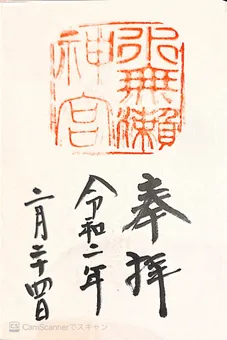 水無瀬
神宮
奉拝
令和二年
二月二十四日
CamScannerでスキャン